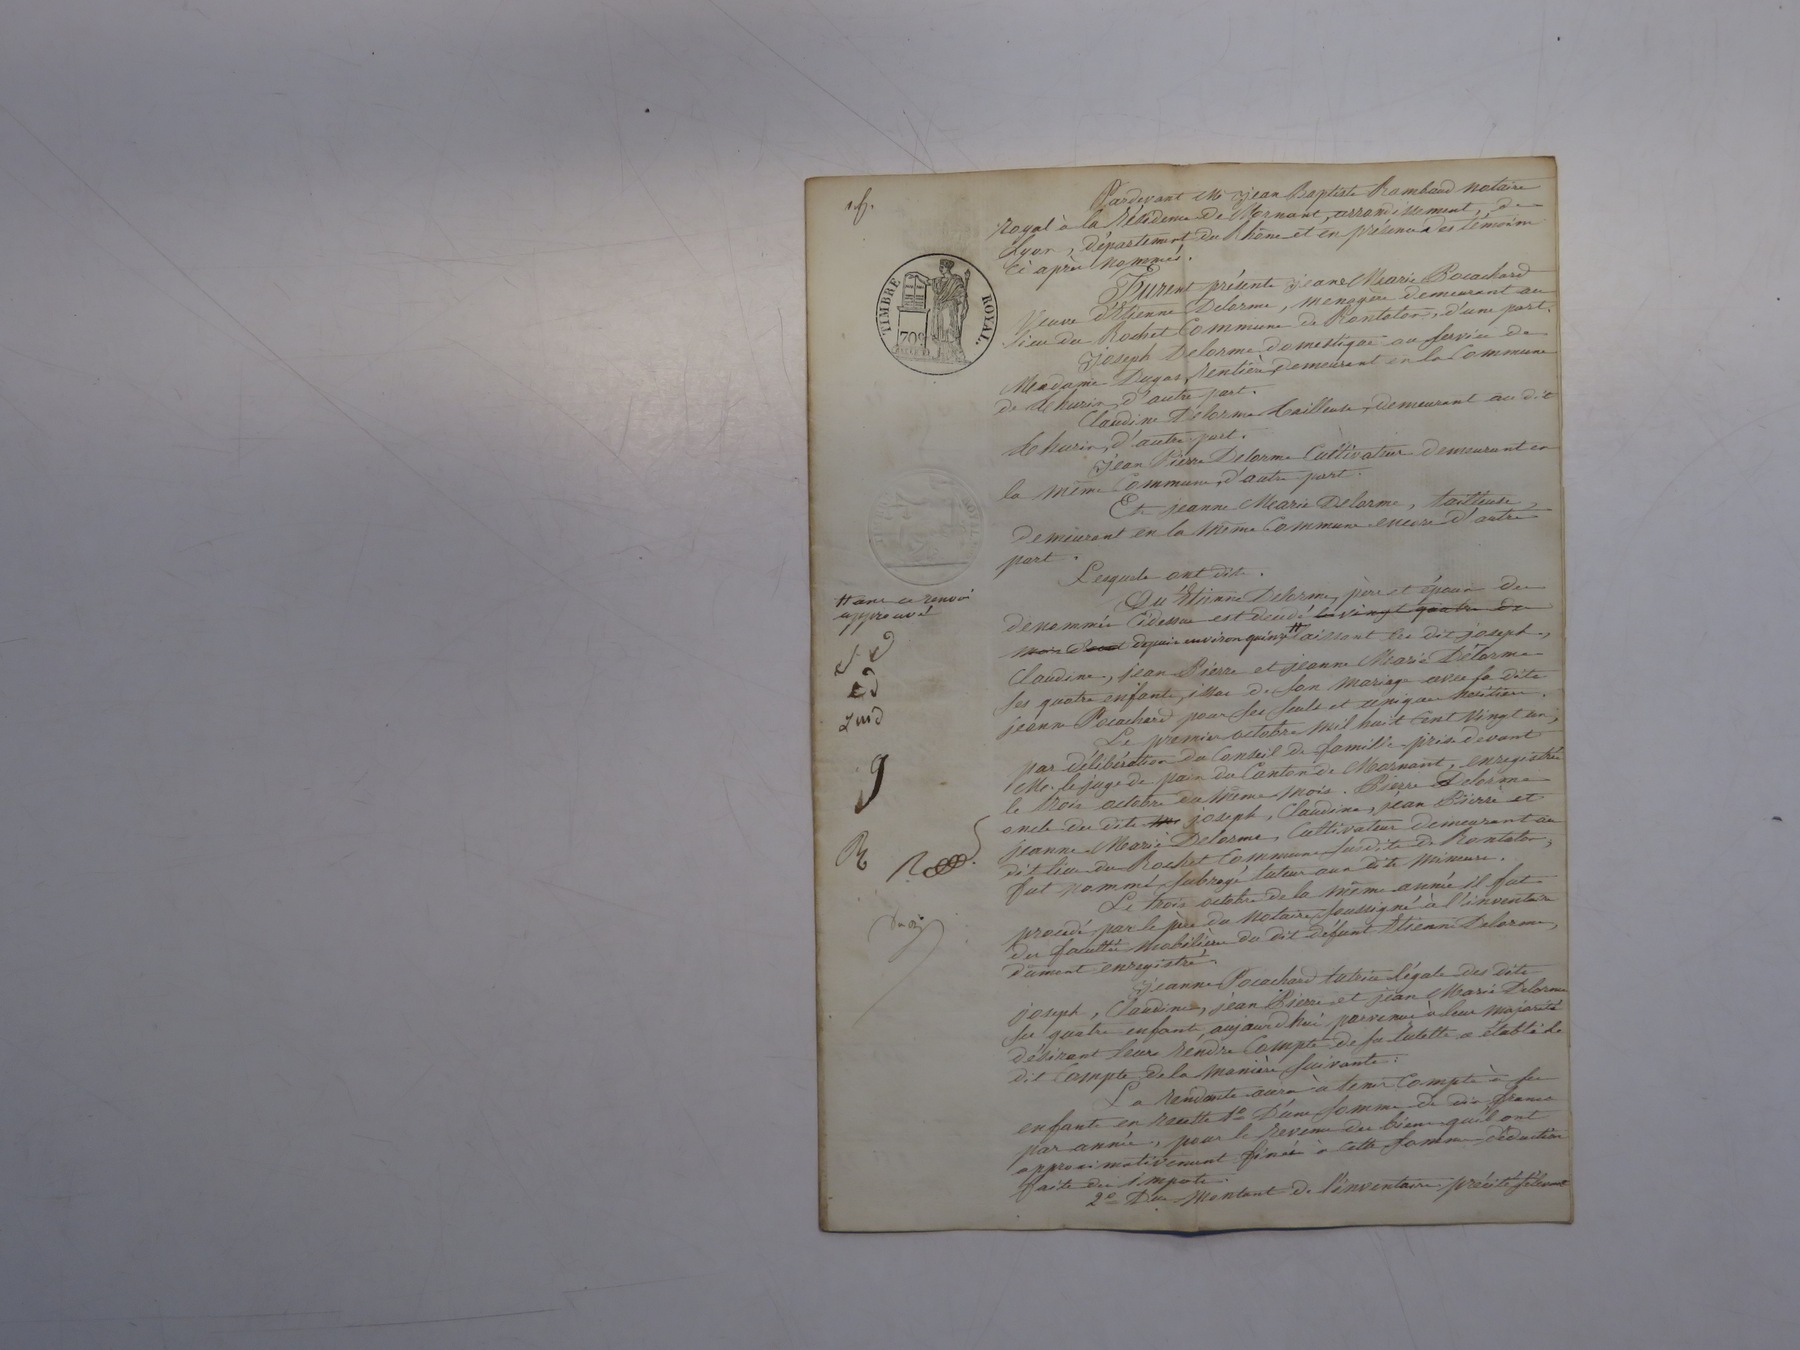 Pardevant Me Jean Baptiste Rambaud notaire
royal à la résidence de Mornant, arrondissement de
Lyon, département du Rhône et en présence des témoins
ci après nommés.
TIMBRE ROYAL.
70c
Furent présents Jeane Marie Pocachard
Veuve d'Etienne Delorme, menagère demeurant au
lieu du Rochet Commune de Rontalon, d'une part.
Joseph Delorme domestique au service de
Madame Dugas, rentière, demeurant en la Commune
de Thurin, d'autre part.
Claudine Delorme tailleuse, demeurant au dit
Thurin, d'autre part.
Jean Pierre Delorme Cultivateur demeurant en
la même Commune, d'autre part.
Et jeanne Marie Delorme, tailleuse,
demeurant en la même Commune encore d'autre
part.
Lesquels ont dit.
Qu'Etienne Delorme, père et époux des
dénommés Cidessus est décédé le vingt quatre du
mois d'aout depuis environ quinze # laissant les dit joseph,
# ans ce renvoi
approuvé
Claudine, jean Pierre et jeanne Marie Delorme
ses quatre enfants, issus de son mariage avec sa dite
jeanne Pocachard pour ses seuls et uniques héritiers.
Le premier octobre mil huit Cent vingt un,
par délibération du Conseil de famille prise devant
Mr. le juge de paix du Canton de Mornant, enregistré
le trois octobre du même mois. Pierre Delorme
oncle des dits joseph, Claudine, jean Pierre et
jeanne Marie Delorme, Cultivateur demeurant au
dit lieu du Rochet Commune susdite de Rontalon,
fut nommé subrogé tuteur aux dits mineurs.
Le trois octobre de la même année il fut
procédé par le père du notaire soussigné à l'inventaire
des facultés mobilières du dit défunt Etienne Delorme,
dûment enregistré.
Jeanne Pocachard tutrice légale des dits
joseph, Claudine, jean Pierre et jean Marie Delorme
ses quatre enfants, aujourdhui parvenus à leur majorité
désirant leurs rendre Compte de sa tutelle a établi le
dit Compte de la manière suivante:
La rendante aura à tenir Compte à ses
enfants en recette 1o D'une somme de dix francs
par année, pour le revenu des biens qu'ils ont
approximativement fixés à cette somme déduction
faite des impots.
2o Du montant de l'inventaire précité s'élevant